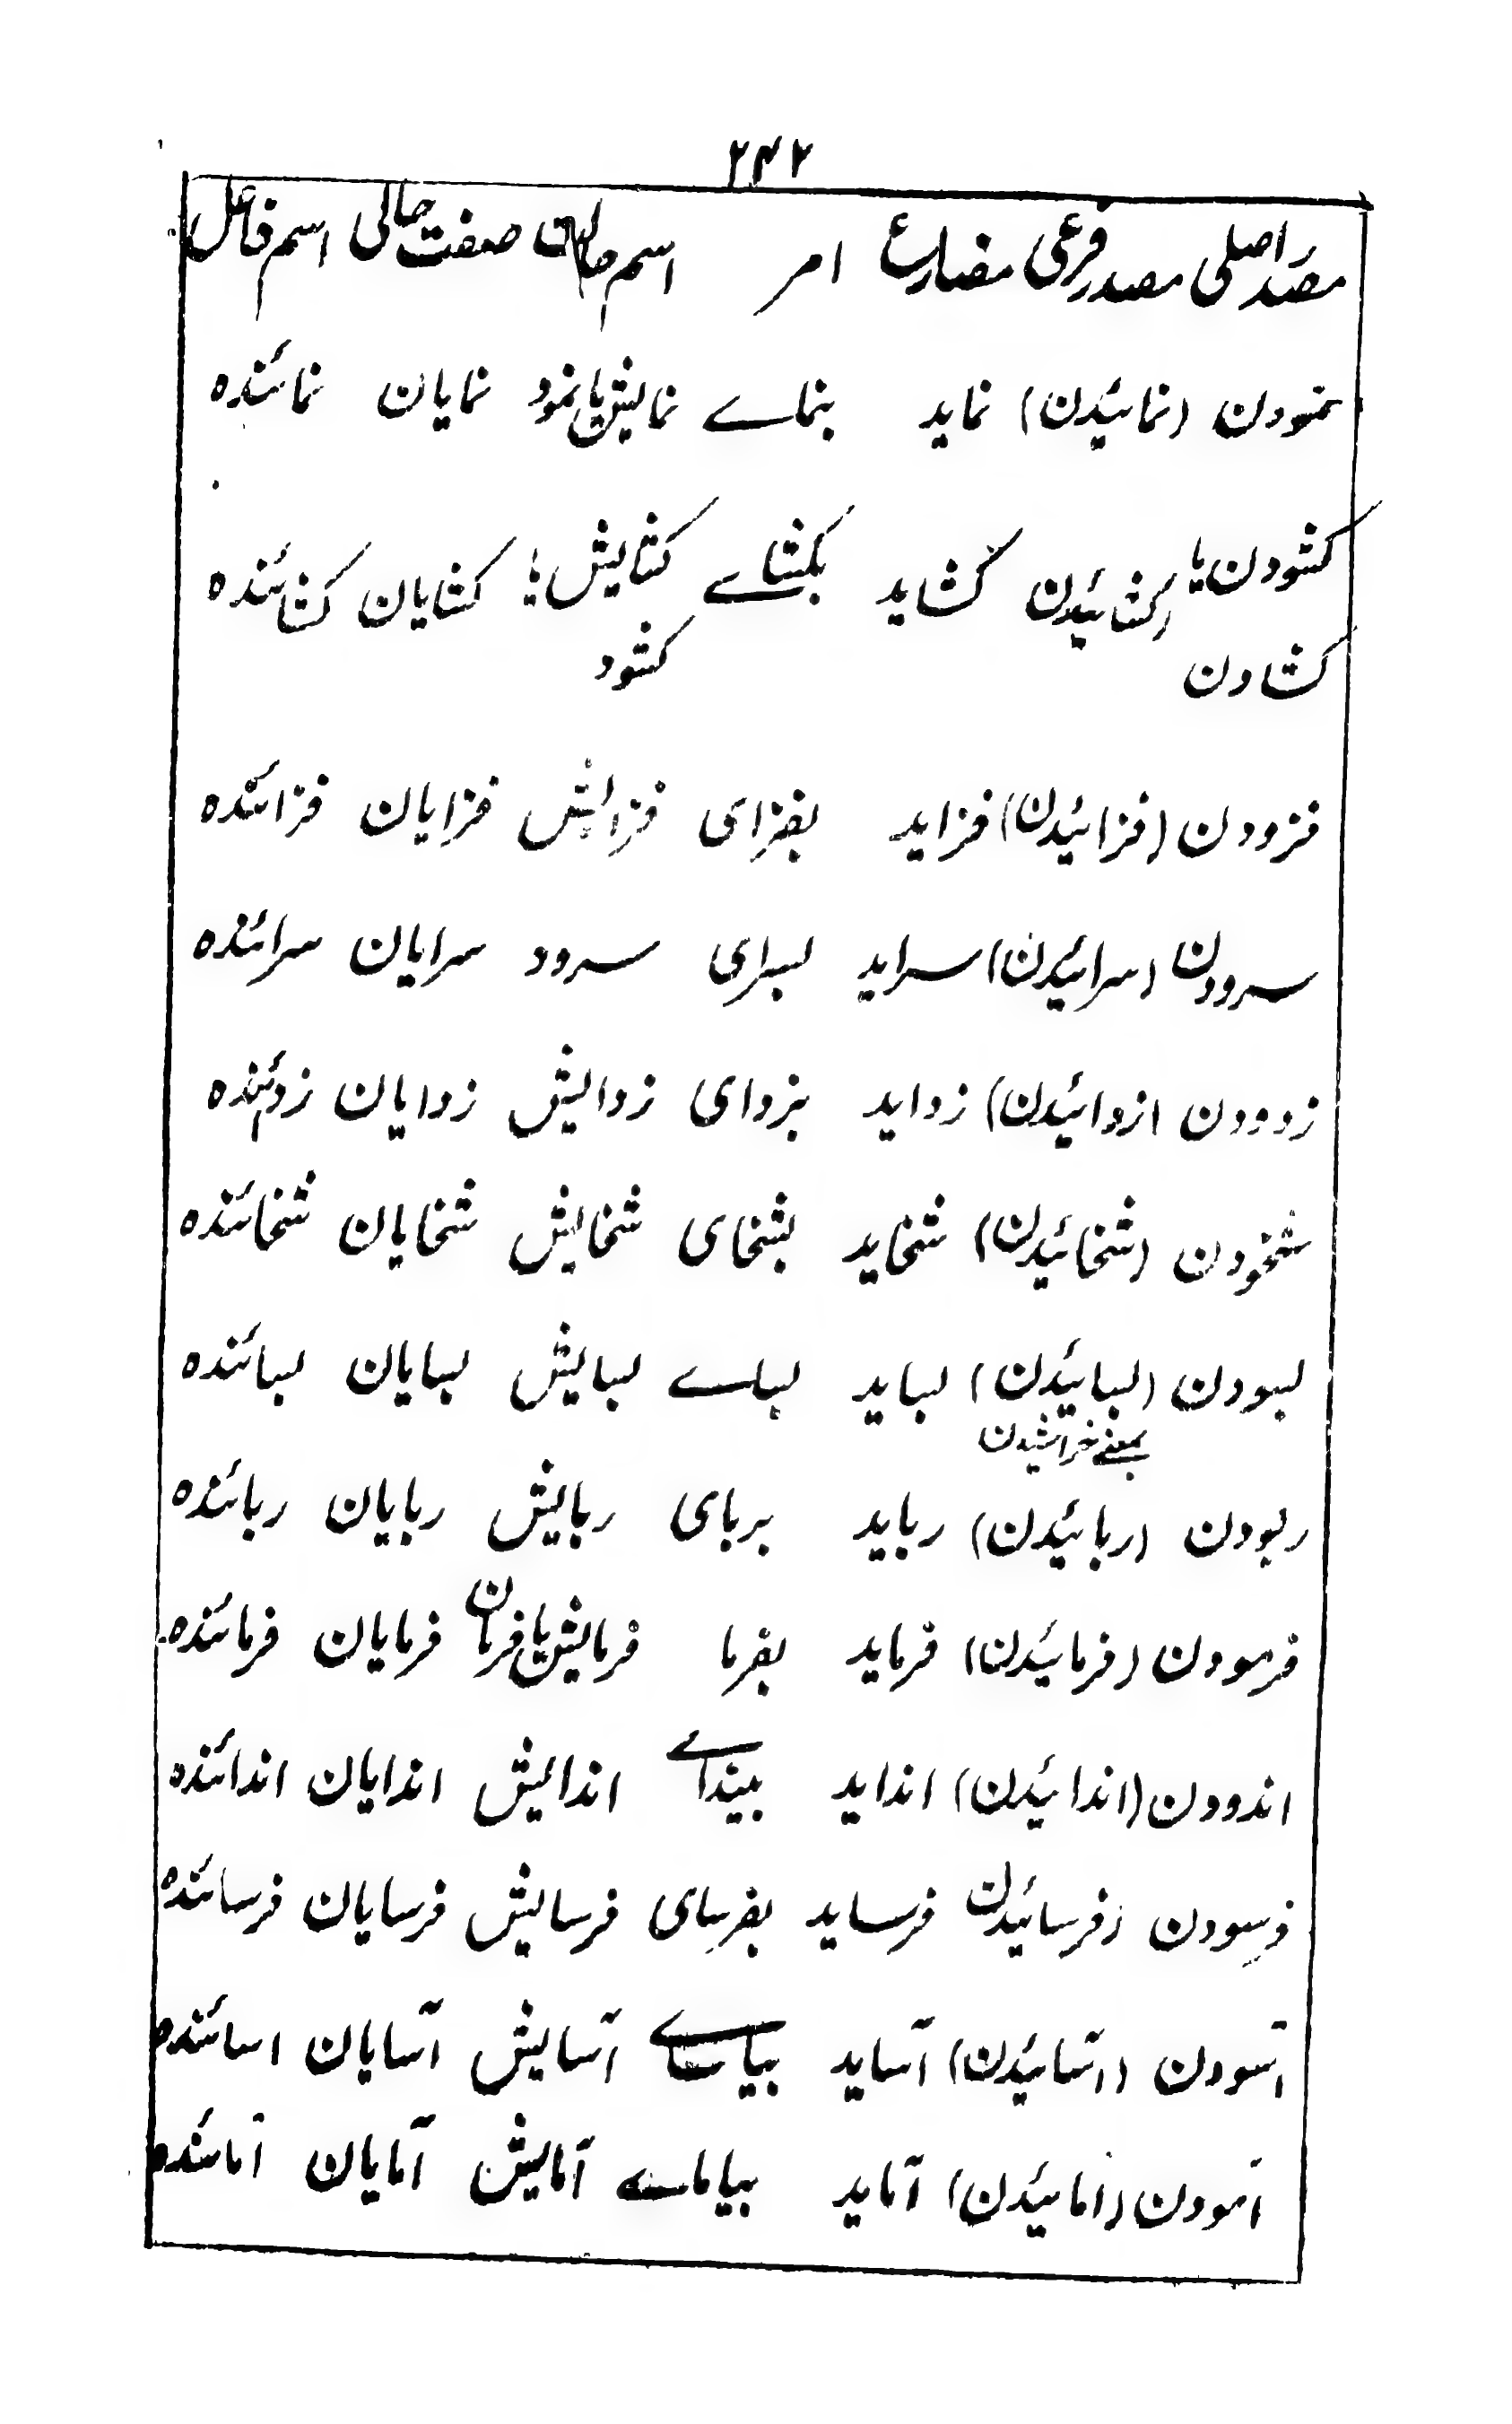 ۲۴۲
مصدر اصلی مصدر فرعی مضارع امر اسم حالت صفت حالی اسم فاعل
نمودن (نمائیدن) نماید بنماے نمایش یا نمود نمایان نمائنده
کشودن یا (کشائیدن کشاید بکشاے کشایش یا کشایان کشائنده
کشادن کشود
فزودن (فزائیدن) فزاید بفزای فزایش فزایان فزائنده
سرودن (سرائیدن) سراید بسرای سرود سرایان سرائنده
زدودن (زدائیدن) زداید بزدای زدایش زدایان زدائنده
شخودن (شخائیدن) شخاید بشخای شخایش شخایان شخائنده
لبودن (لبائیدن) لباید لباے لبایش لبایان لبائنده
بمعنے خراشیدن
ربودن (ربائیدن) رباید بربای ربایش ربایان ربائنده
فرمودن (فرمائیدن) فرماید بفرما فرمایش یا فرمان فرمایان فرمائنده
اندودن (اندائیدن) انداید بینداے اندایش اندایان اندائنده
فرسودن (فرسائیدن فرساید بفرسای فرسایش فرسایان فرسائنده
آسودن (آسائیدن) آساید بیاساے آسایش آسایان اسائنده
آمودن (امائیدن) آماید بیاماے آمایش آمایان آمائنده